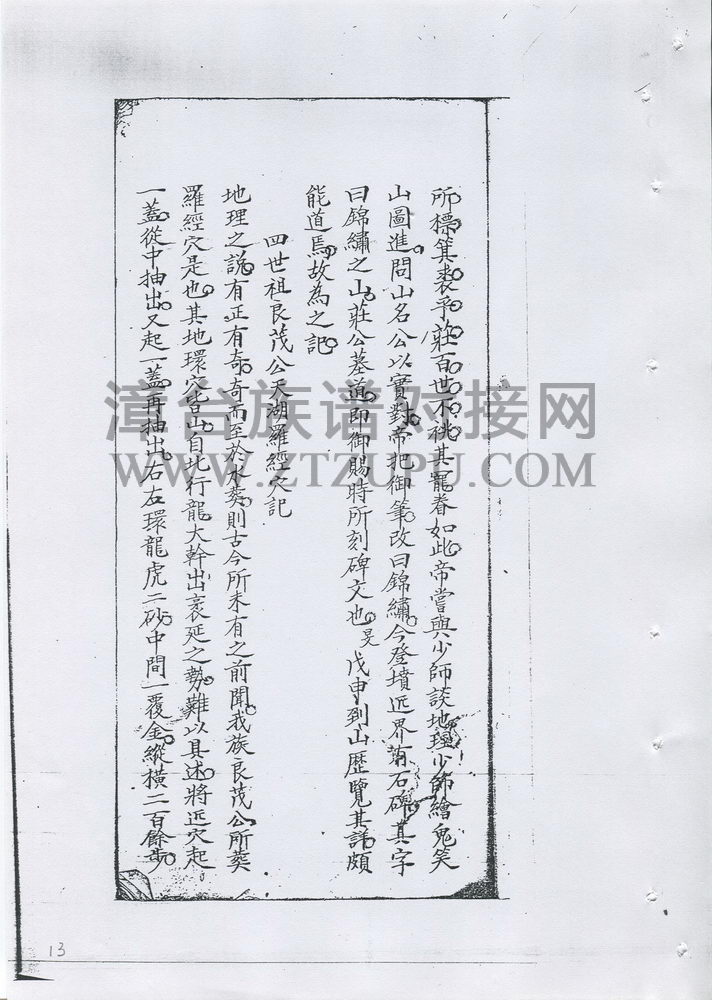 所標箕裘乎莊百世不祧其寵眷如此帝嘗與少師談地理少師繪鬼笑
山圖進問山名公以實對帝把御筆改曰錦繡今登墳近界有石碑其字
曰錦繡之山莊公墓道即御賜時所刻碑文也昃戊申到山歷覽其詳頗
能道焉故為之記
四世祖良茂公天湖羅經穴記
地理之說有正有奇奇而至於水葵則古今所未有之前聞我族良茂公所葵
羅經穴是也其地環穴皆山自北行龍大幹出袤延之勢難以具述將近穴起
一蓋從中抽出又起一蓋再抽出右左環龍虎二砂中間一覆金縱橫二百餘步
漳台族谱对接网
WWW.ZTZUPU.COM
13